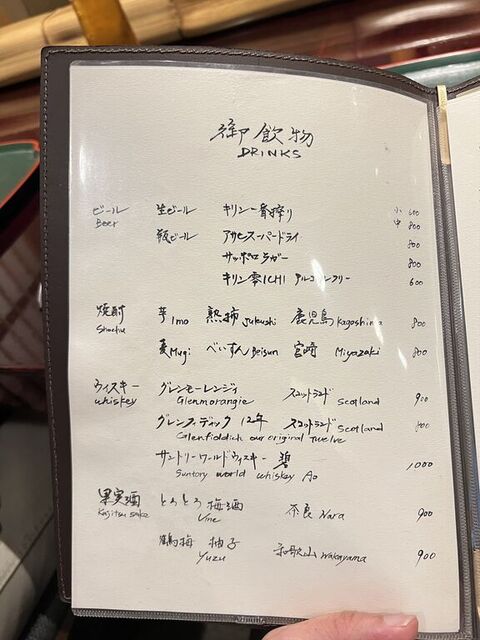 御飲物
DRINKS
ビール 生ビール キリン一番搾り 小 600
Beer 中 800
瓶ビール アサヒスーパードライ 800
サッポロラガー 800
キリン零ICHI アルコールフリー 600
焼酎 芋 Imo 熟柿 Jukushi 鹿児島 Kagoshima 800
Shochu
麦 Mugi べいすん Beisun 宮崎 Miyazaki 800
ウィスキー グレンモーレンジィ スコットランド Scotland 900
whiskey Glenmorangie
グレンフィディック 12年 スコットランド Scotland 800
Glenfiddich our original Twelve
サントリーワールドウィスキー 碧 1,000
Suntory world whiskey Ao
果実酒 とろとろ 梅酒 奈良 Nara 900
Kajitsu sake
鶴梅 柚子 和歌山 Wakayama 900
Yuzu